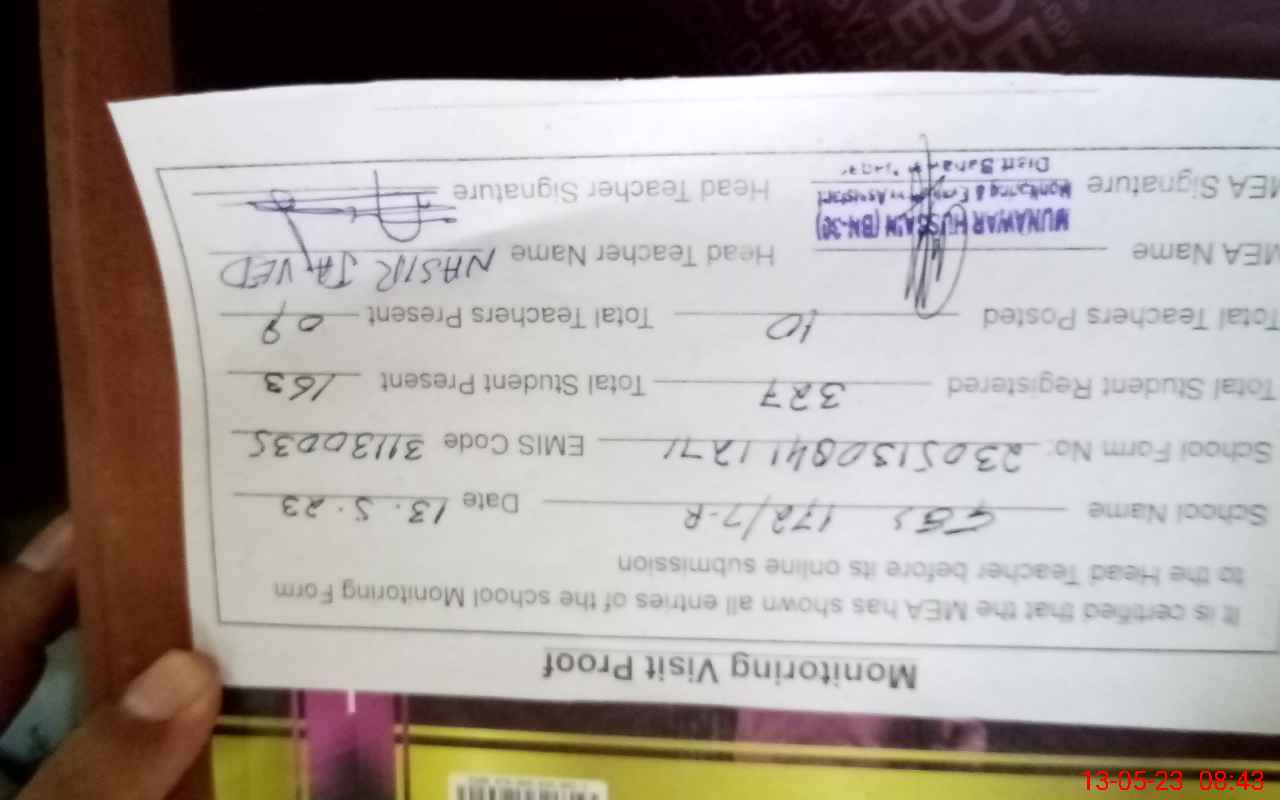 Monitoring Visit Proof
It is certified that the MEA has shown all entries of the school Monitoring Form
to the Head Teacher before its online submission
School Name GES 172/7-R Date 13.5.23
School Form No: 2305130841 1271 EMIS Code 31130035
Total Student Registered 327 Total Student Present 163
Total Teachers Posted 10 Total Teachers Present 09
MEA Name Head Teacher Name NASIR JAVED
MUNAWAR HUSSAIN (BN-30)
Monitoring & Evaluation Assistant
MEA Signature Head Teacher Signature
Distt Bahawalnagar
13-05-23 08:43